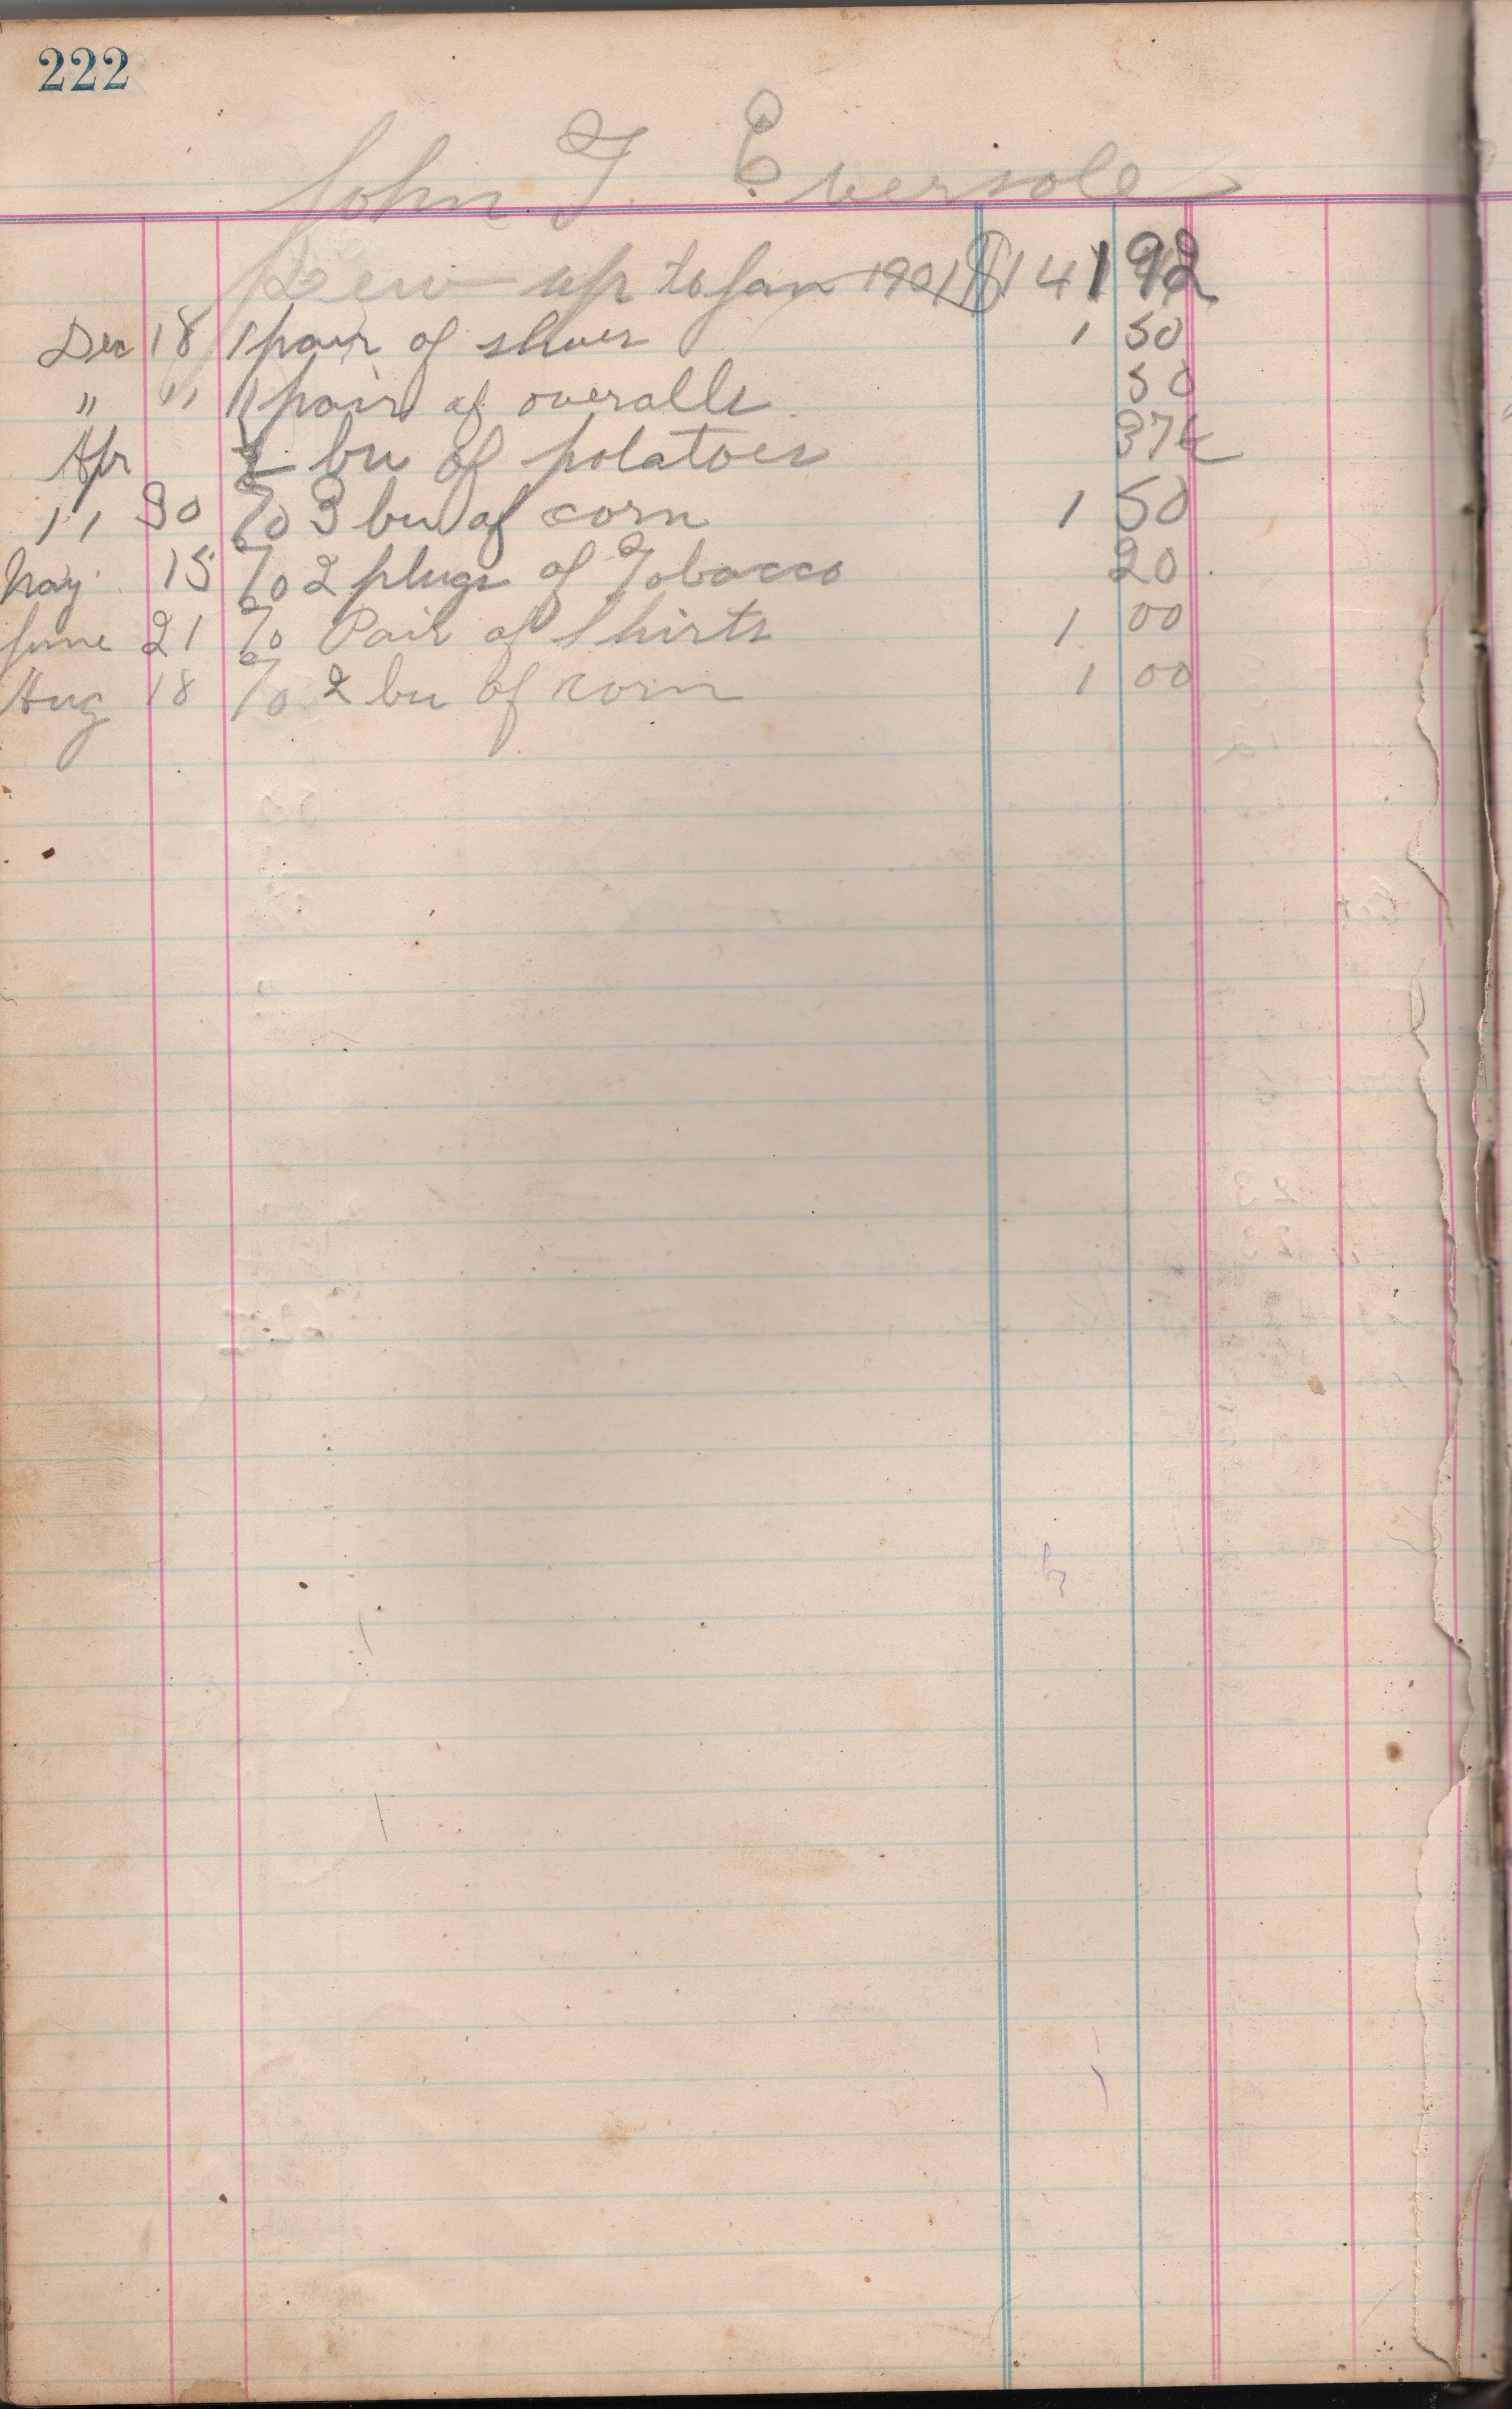 222
John T. Eversole
Dew up to Jan 1901 $141 92
Dec 18 1 pair of shoes 1 50
" " 1 pair of overalls 50
Apr ½ bu of potatoes 37½
" 30 To 3 bu of corn 1 50
May 15 To 2 plugs of Tobacco 20
June 21 To Pair of Shirts 1 00
Aug 18 To 2 bu of corn 1 00